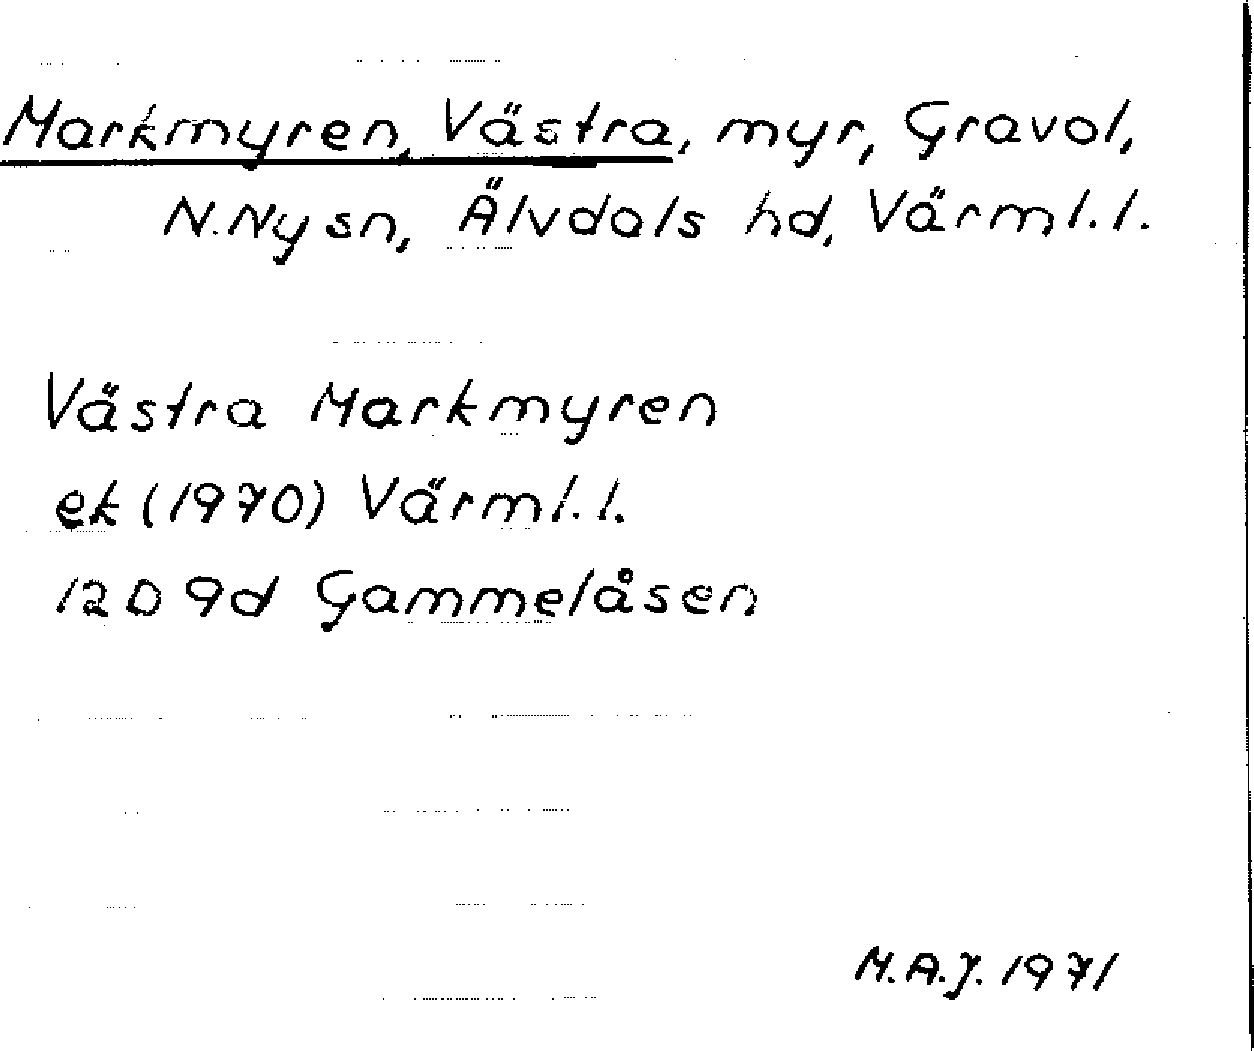 Markmyren, Västra, myr, Gravol,
N. Ny sn, Älvdals hd, Värml. l.
Västra Markmyren
ek (1970) Värml. l.
12 D 9d Gammelåsen
M.A.J. 1971